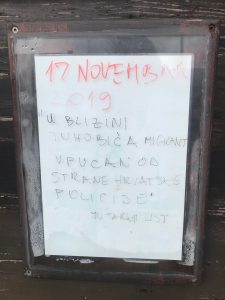 17 NOVEMBAR
2019
"U BLIZINI
TUHOBIĆA MIGRANT
UPUCAN OD
STRANE HRVATSKE
POLICIJE"
JUTARNJI LIST